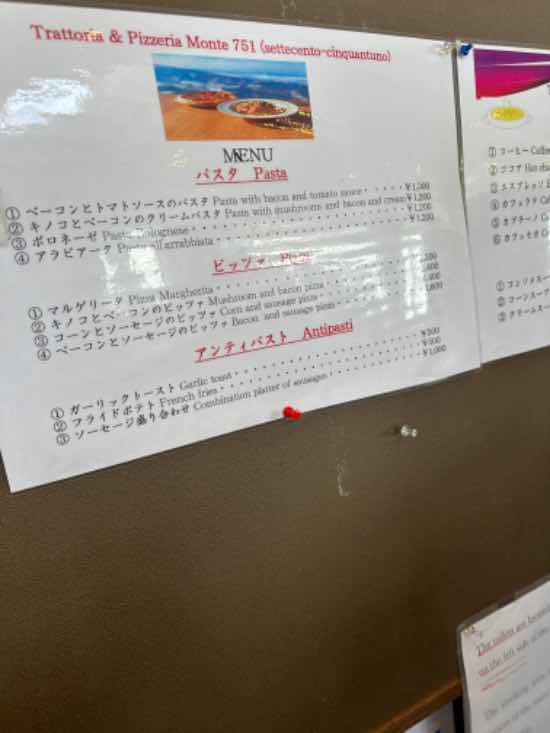 Trattoria & Pizzeria Monte 751 (settecento-cinquantuno)
MENU
パスタ Pasta
① ベーコンとトマトソースのパスタ Pasta with bacon and tomato sauce ・・・・・
② キノコとベーコンのクリームパスタ Pasta with mushrooms and bacon and cream ¥1,200
③ ボロネーゼ Pasta Bolognese ・・・・・・・・・・・・・・・・・ ¥1,200
④ アラビアータ Pasta all'arrabbiata ・・・・・・・・・・・・・・・・・ ¥1,200
ピッツァ
① マルゲリータ Pizza Margherita ・・・・・・・・・・・・・・
② キノコとベーコンのピッツァ Mushroom and bacon pizza ・・・・・・・・
③ コーンとソーセージのピッツァ Corn and sausage pizza ・・・・・・・・
④ ベーコンとソーセージのピッツァ Bacon and sausage pizza ・・・・・・・
アンティパスト Antipasti
① ガーリックトースト Garlic toast ・・・・・・・・・・・・・・・
② フライドポテト French fries ・・・・・・・・・・・・・・・・
③ ソーセージ盛り合わせ Combination platter of sausages ・・・・・・・・ ¥1,000
① コーヒー
② ココア Hot
③ エスプレッソ
④ カフェラテ
⑤ カプチーノ
⑥ カフェモカ
① コンソメスー
② コーンスープ
③ クリームスー
The toilets are
on the left side